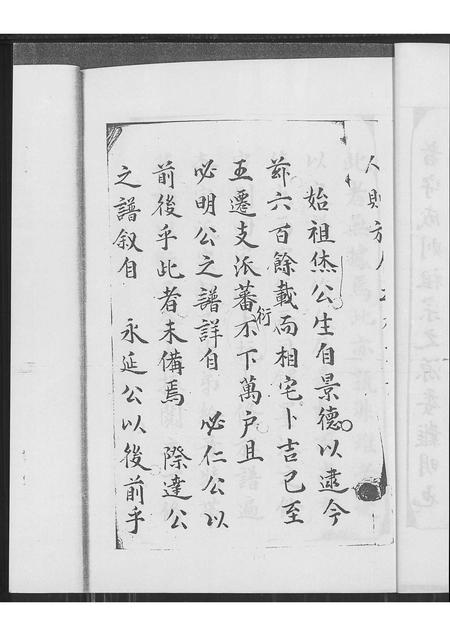 人則方
始祖烋公生自景德以逮今
茲六百餘載而相宅卜吉已至
五遷支派蕃衍不下萬戶且
必明公之譜詳自 必仁公以
前後乎此者未備焉 際達公
之譜叙自 永延公以後前乎